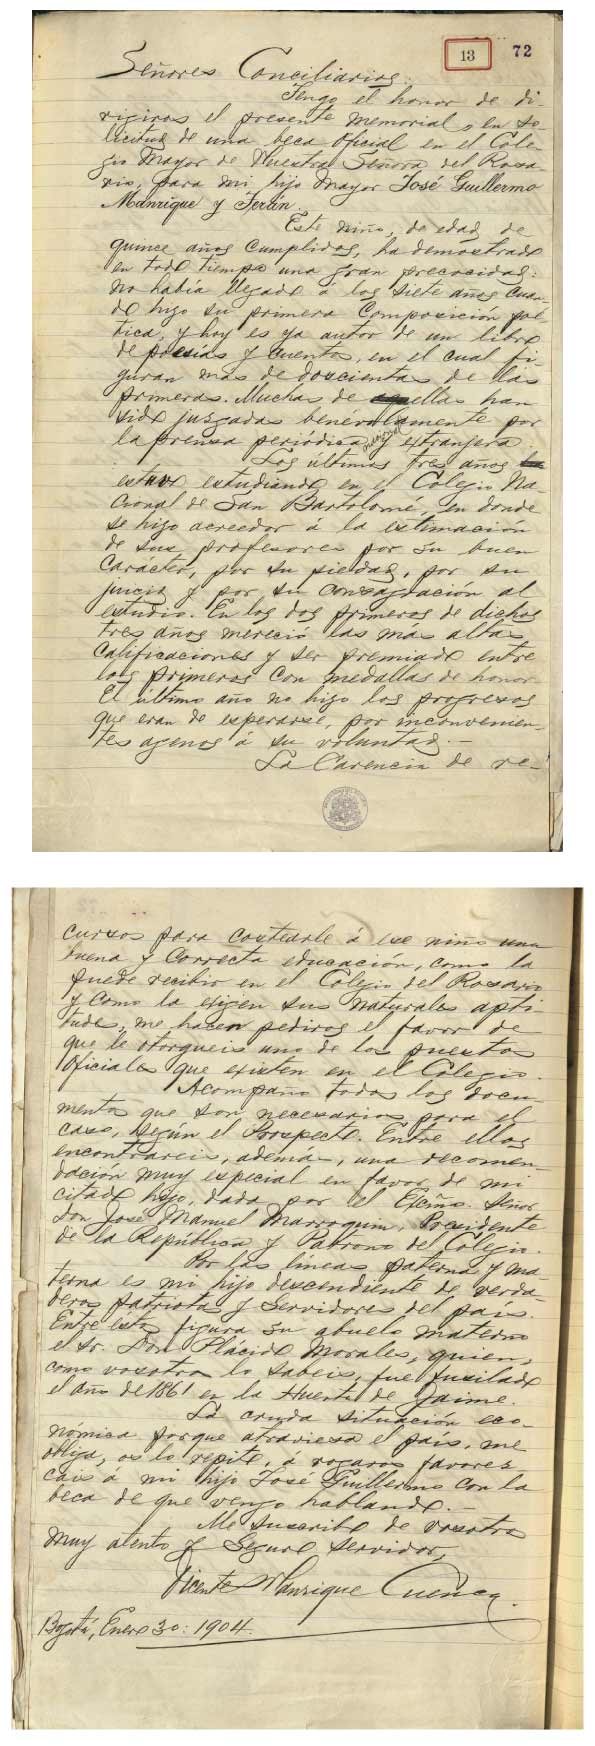 13 72
Señores Conciliarios:
Tengo el honor de di-
rigiros el presente memorial, en so-
licitud de una beca Oficial en el Cole-
gio Mayor de Nuestra Señora del Rosa-
rio, para mi hijo mayor José Guillermo
Manrique y Terán.
Este niño, de edad de
quince años cumplidos, ha demostrado
en todo tiempo una gran precocidad:
no había llegado á los siete años cuan-
do hizo su primera composición poé-
tica, y hoy es ya autor de un libro
de poesías y cuentos, en el cual fi-
guran más de doscientas de las
primeras. Muchas de ellas han
sido juzgadas benévolamente por
la prensa periódica nacional y extranjera.
Los últimos tres años
estuvo estudiando en el Colegio Na-
cional de San Bartolomé, en donde
se hizo acreedor á la estimación
de sus profesores por su buen
carácter, por su piedad, por su
juicio y por su consagración al
estudio. En los dos primeros de dichos
tres años mereció las más altas
calificaciones y ser premiado entre
los primeros con medallas de honor.
El último año no hizo los progresos
que eran de esperarse, por inconvenien-
tes agenos á su voluntad.—
La carencia de re-
cursos para costearle á ese niño una
buena y correcta educación, como la
puede recibir en el Colegio del Rosario
y como la exigen sus naturales apti-
tudes, me hacen pediros el favor de
que le otorgueis uno de los puestos
Oficiales que existen en el Colegio.
Acompaño todos los docu-
mentos que son necesarios para el
caso, según el Prospecto. Entre ellos
encontrareis, además, una recomen-
dación muy especial en favor de mi
citado hijo, dada por el Excmo. Señor
Don José Manuel Marroquin, Presidente
de la República y Patrono del Colegio.
Por las líneas paterna y ma-
terna es mi hijo descendiente de verda-
deros patriotas y servidores del país.
Entre estos figura su abuelo materno
el Sr. Don Plácido Morales, quien,
como vosotros lo sabeis, fué fusilado
el año de 1861 en la Huerta de Jaime.
La cruda situación eco-
nómica porque atraviesa el país, me
obliga, os lo repito, á rogaros favorez-
cais á mi hijo José Guillermo con la
beca de que vengo hablando.—
Me suscribo de vosotros
muy atento y seguro servidor,
Vicente Manrique Cuenca.
Bogotá, Enero 30: 1904.